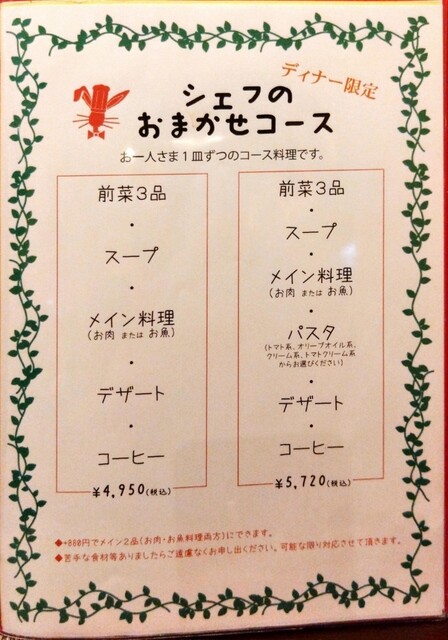 ディナー限定
シェフの
おまかせコース
お一人さま１皿ずつのコース料理です。
前菜３品
・
スープ
・
メイン料理
(お肉 または お魚)
・
デザート
・
コーヒー
¥4,950(税込)
前菜３品
・
スープ
・
メイン料理
(お肉 または お魚)
・
パスタ
(トマト系、オリーブオイル系、
クリーム系、トマトクリーム系
からお選びください)
・
デザート
・
コーヒー
¥5,720(税込)
◆+880円でメイン２品(お肉・お魚料理両方)にできます。
◆苦手な食材等ありましたらご遠慮なくお申し出ください。可能な限り対応させて頂きます。